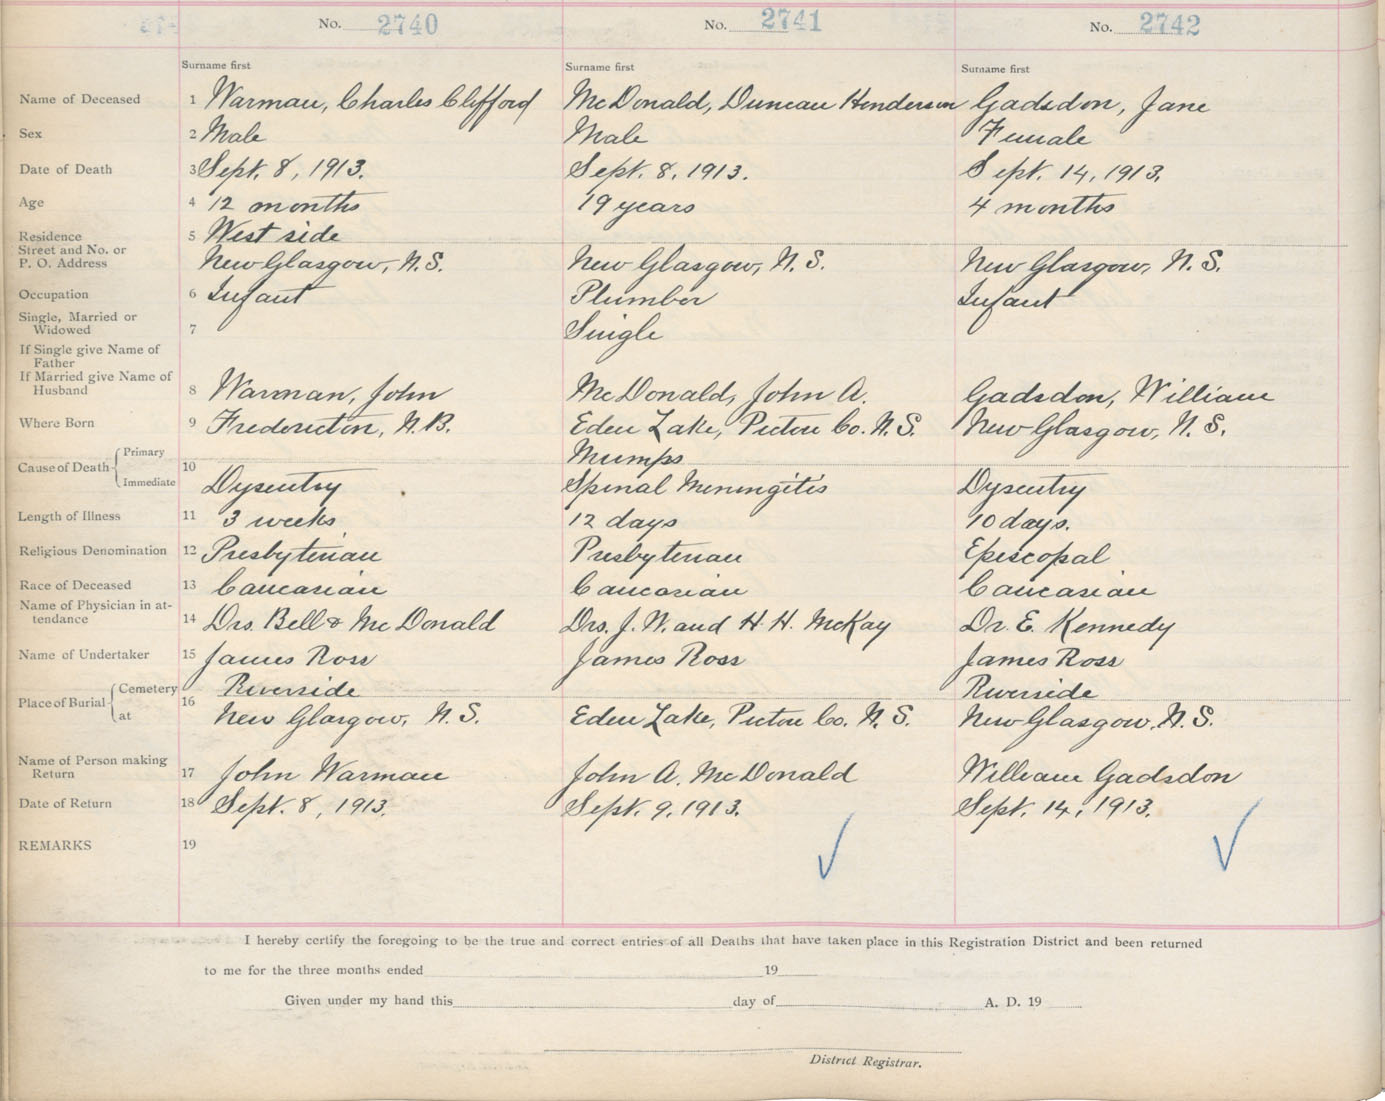 No. 2740 No. 2741 No. 2742
Surname first Surname first Surname first
Name of Deceased 1 Warman, Charles Clifford McDonald, Duncan Henderson Gadsdon, Jane
Sex 2 Male Male Female
Date of Death 3 Sept. 8, 1913. Sept. 8, 1913. Sept. 14, 1913.
Age 4 12 months 19 years 4 months
Residence 5 West side
Street and No. or
P. O. Address New Glasgow, N.S. New Glasgow, N.S. New Glasgow, N.S.
Occupation 6 Infant Plumber Infant
Single, Married or
Widowed 7 Single
If Single give Name of
Father
If Married give Name of
Husband 8 Warman, John McDonald, John A. Gadsdon, William
Where Born 9 Fredericton, N.B. Eden Lake, Pictou Co. N.S. New Glasgow, N.S.
Cause of Death Primary 10 Mumps
Immediate Dysentry Spinal Meningitis Dysentry
Length of Illness 11 3 weeks 12 days 10 days.
Religious Denomination 12 Presbyterian Presbyterian Episcopal
Race of Deceased 13 Caucasian Caucasian Caucasian
Name of Physician in at-
tendance 14 Drs. Bell & McDonald Drs. J. W. and H. H. McKay Dr. E. Kennedy
Name of Undertaker 15 James Ross James Ross James Ross
Place of Burial Cemetery 16 Riverside Riverside
at New Glasgow, N.S. Eden Lake, Pictou Co. N.S. New Glasgow, N.S.
Name of Person making
Return 17 John Warman John A. McDonald William Gadsdon
Date of Return 18 Sept. 8, 1913. Sept. 9, 1913. Sept. 14, 1913.
REMARKS 19
I hereby certify the foregoing to be the true and correct entries of all Deaths that have taken place in this Registration District and been returned
to me for the three months ended 19
Given under my hand this day of A. D. 19
District Registrar.